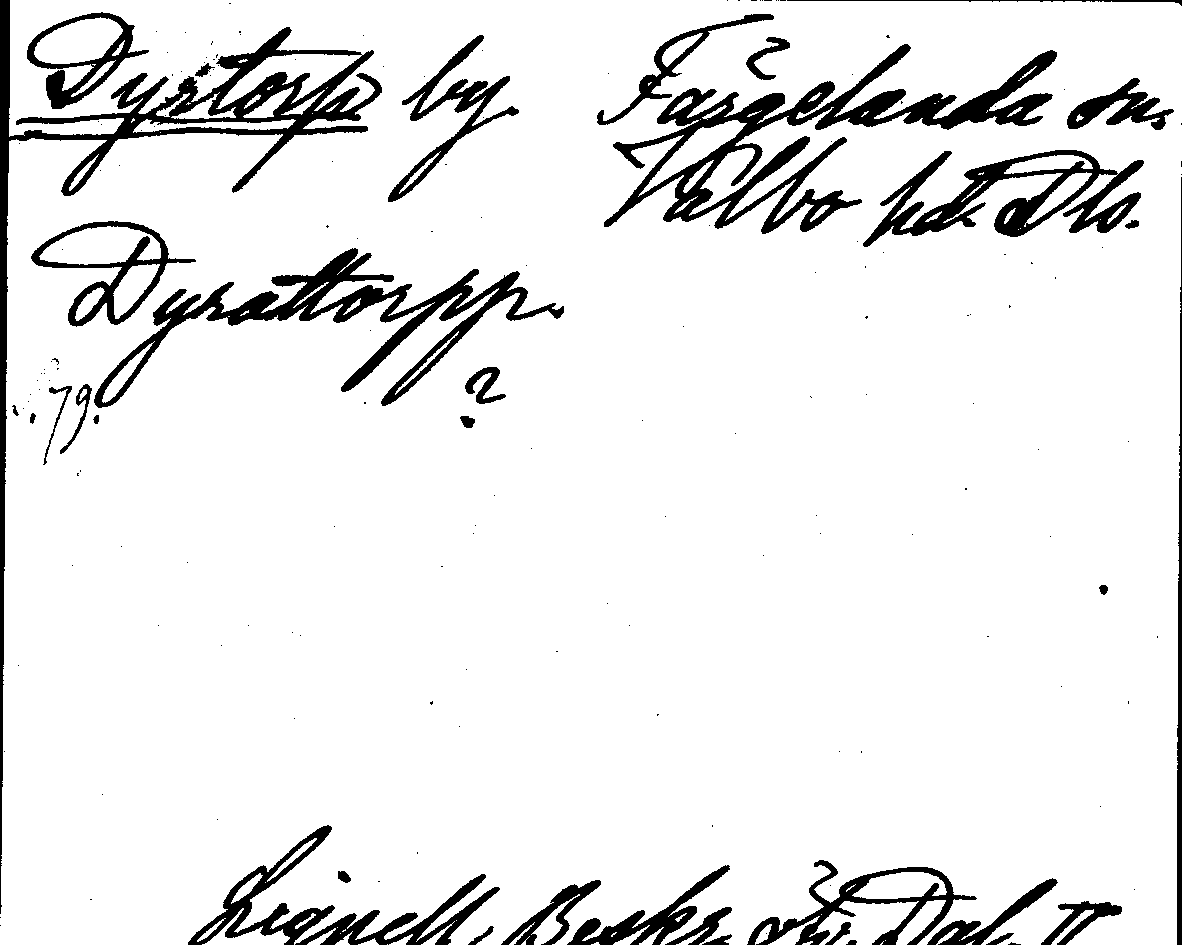 Dyrtorp by. Färgelanda sn,
Valbo hd. Dls.
Dyrattorpp.
?
79.
Lignell, Beskr. öfv. Dal. II